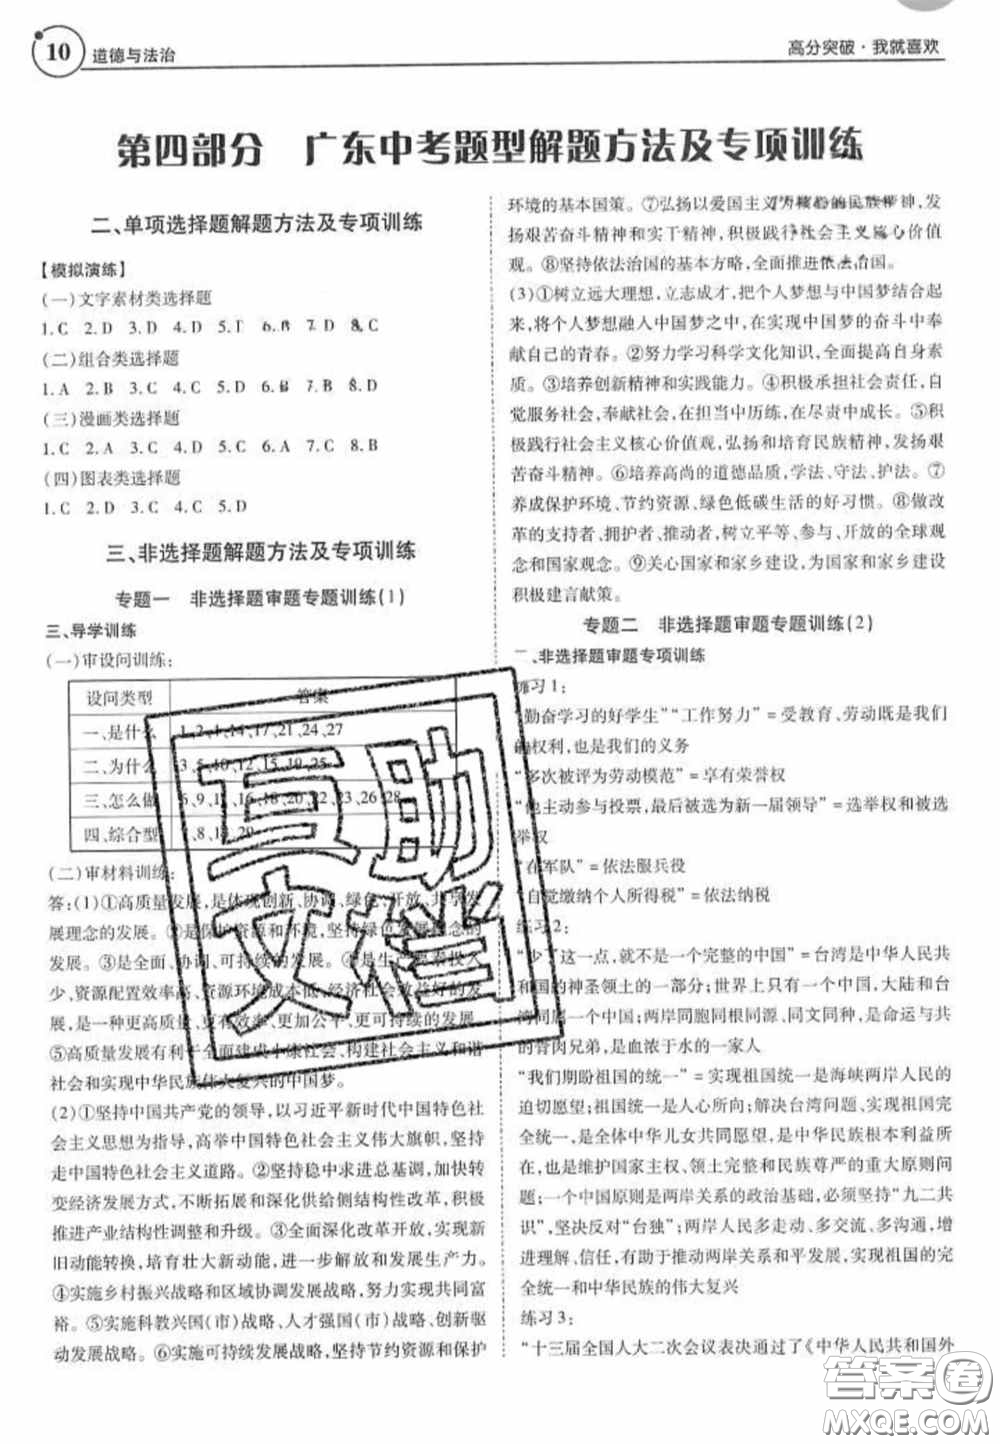 10 道德与法治
高分突破·我就喜欢
第四部分 广东中考题型解题方法及专项训练
二、单项选择题解题方法及专项训练
【模拟演练】
(一)文字素材类选择题
1.C 2.D 3.D 4.D 5. 6.B 7.D 8.C
(二)组合类选择题
1.A 2.B 3.C 4.C 5.D 6.B 7.D 8.D
(三)漫画类选择题
1.C 2.A 3.D 4.C 5.D 6.A 7.C 8.B
(四)图表类选择题
1.C 2.D 3.C 4.C 5.D
三、非选择题解题方法及专项训练
专题一 非选择题审题专题训练(1)
三、导学训练
(一)审设问训练:
设问类型 答案
一、是什么 1、2、4、14、17、21、24、27
二、为什么 3、5、10、12、15、19、25
三、怎么做 6、9、11、16、18、20、22、23、26、28
四、综合型 、8、13、29
(二)审材料训练:
答:(1)①高质量发展,是体现创新、协调、绿色、开放、共享发
展理念的发展。②是保护资源和环境,坚持绿色发展理念的
发展。③是全面、协调、可持续的发展。④是生产要素投入
少,资源配置效率高、资源环境成本低、经济社会效益好的发
展,是一种更高质量、更有效率、更加公平、更可持续的发展。
⑤高质量发展有利于全面建成小康社会、构建社会主义和谐
社会和实现中华民族伟大复兴的中国梦。
(2)①坚持中国共产党的领导,以习近平新时代中国特色社
会主义思想为指导,高举中国特色社会主义伟大旗帜,坚持
走中国特色社会主义道路。②坚持稳中求进总基调,加快转
变经济发展方式,不断拓展和深化供给侧结构性改革,积极
推进产业结构性调整和升级。③全面深化改革开放,实现新
旧动能转换,培育壮大新动能,进一步解放和发展生产力。
④实施乡村振兴战略和区域协调发展战略,实现共同富
裕。⑤实施科教兴国(市)战略、人才强国(市)战略、创新驱
动发展战略。⑥实施可持续发展战略,坚持节约资源和保护
环境的基本国策。⑦弘扬以爱国主义为核心的民族精神,发
扬艰苦奋斗精神和实干精神,积极践行社会主义核心价值
观。⑧坚持依法治国的基本方略,全面推进依法治国。
(3)①树立远大理想,立志成才,把个人梦想与中国梦结合起
来,将个人梦想融入中国梦之中,在实现中国梦的奋斗中奉
献自己的青春。②努力学习科学文化知识,全面提高自身素
质。③培养创新精神和实践能力。④积极承担社会责任,自
觉服务社会,奉献社会,在担当中历练,在尽责中成长。⑤积
极践行社会主义核心价值观,弘扬和培育民族精神,发扬艰
苦奋斗精神。⑥培养高尚的道德品质,学法、守法、护法。⑦
养成保护环境、节约资源、绿色低碳生活的好习惯。⑧做改
革的支持者、拥护者、推动者,树立平等、参与、开放的全球观
念和国家观念。⑨关心国家和家乡建设,为国家和家乡建设
积极建言献策。
专题二 非选择题审题专题训练(2)
二、非选择题审题专项训练
练习1:
“勤奋学习的好学生”“工作努力”=受教育、劳动既是我们
的权利,也是我们的义务
“多次被评为劳动模范”=享有荣誉权
“他主动参与投票,最后被选为新一届领导”=选举权和被选
举权
“在军队”=依法服兵役
“自觉缴纳个人所得税”=依法纳税
练习2:
“少了这一点,就不是一个完整的中国”=台湾是中华人民共
和国的神圣领土的一部分;世界上只有一个中国,大陆和台
湾同属一个中国;两岸同胞同根同源、同文同种,是命运与共
的骨肉兄弟,是血浓于水的一家人
“我们期盼祖国的统一”=实现祖国统一是海峡两岸人民的
迫切愿望;祖国统一是人心所向;解决台湾问题、实现祖国完
全统一,是全体中华儿女共同愿望,是中华民族根本利益所
在,也是维护国家主权、领土完整和民族尊严的重大原则问
题;一个中国原则是两岸关系的政治基础,必须坚持“九二共
识”,坚决反对“台独”;两岸人民多走动、多交流、多沟通,增
进理解、信任,有助于推动两岸关系和平发展,实现祖国的完
全统一和中华民族的伟大复兴
练习3:
“十三届全国人大二次会议表决通过了《中华人民共和国外
互助
文档
答案圈
MXQE.COM